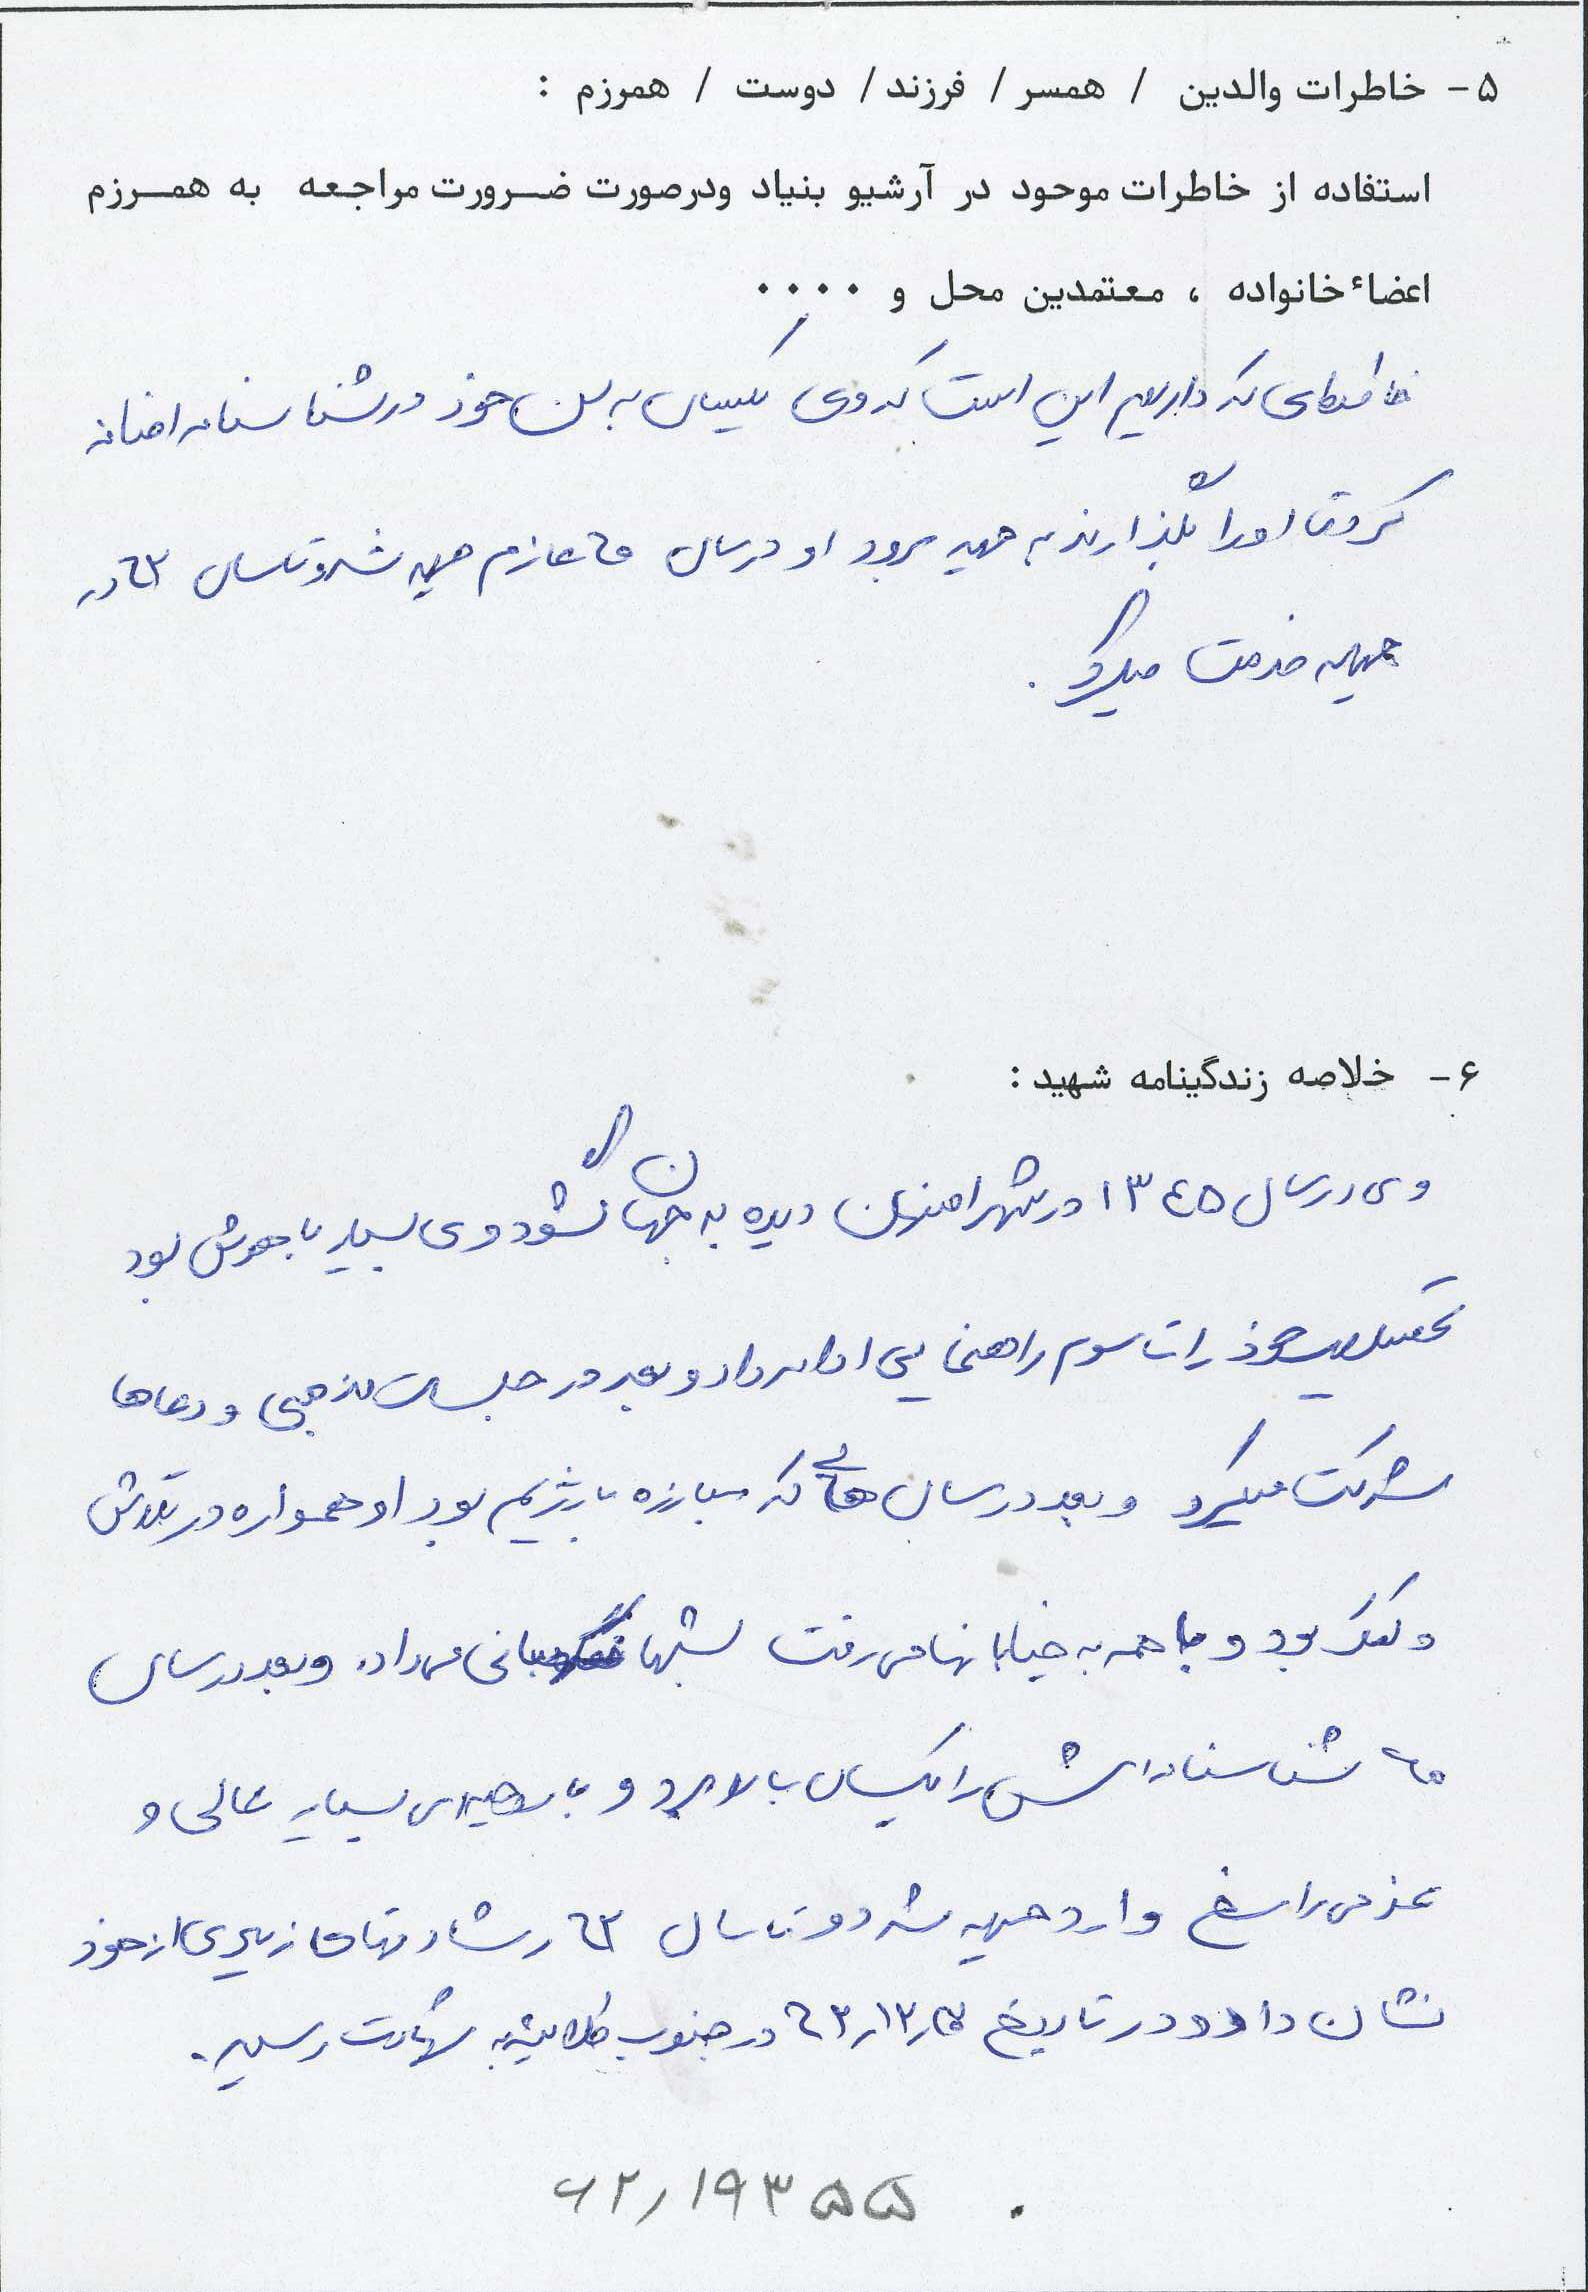 ۵- خاطرات والدین / همسر / فرزند / دوست / همرزم :
استفاده از خاطرات موحود در آرشیو بنیاد ودرصورت ضرورت مراجعه به همرزم
اعضاء خانواده ، معتمدین محل و ....
خاطره‌ای که داریم این است که وی یکسال به سن خود در شناسنامه اضافه
کرد تا او را بگذارند به جبهه برود او در سال ۶۰ عازم جبهه شد و تا سال ۶۳ در
جبهه خدمت میکرد .
۶- خلاصه زندگینامه شهید :
وی در سال ۱۳۴۵ در شهر دیده به جهان گشود وی بسیار باهوش بود
تحصیلات خود را تا سوم راهنمایی ادامه داد و بعد در جلسات مذهبی و دعاها
شرکت میکرد و بعد در سال هائی که مبارزه با رژیم بود او همواره در تلاش
و بود و با همه به خیابانها می رفت شبها نگهبانی می داد. و بعد در سال
۶۰ شناسنامه اش را یکسال بالا برد و با روحیه‌ای بسیار عالی و
عزمی راسخ وارد جبهه شد و تا سال ۶۳ رشادتهای زیادی از خود
نشان داد و در تاریخ در جنوب به شهادت رسید.
۶۲/۱۹۳۵۵